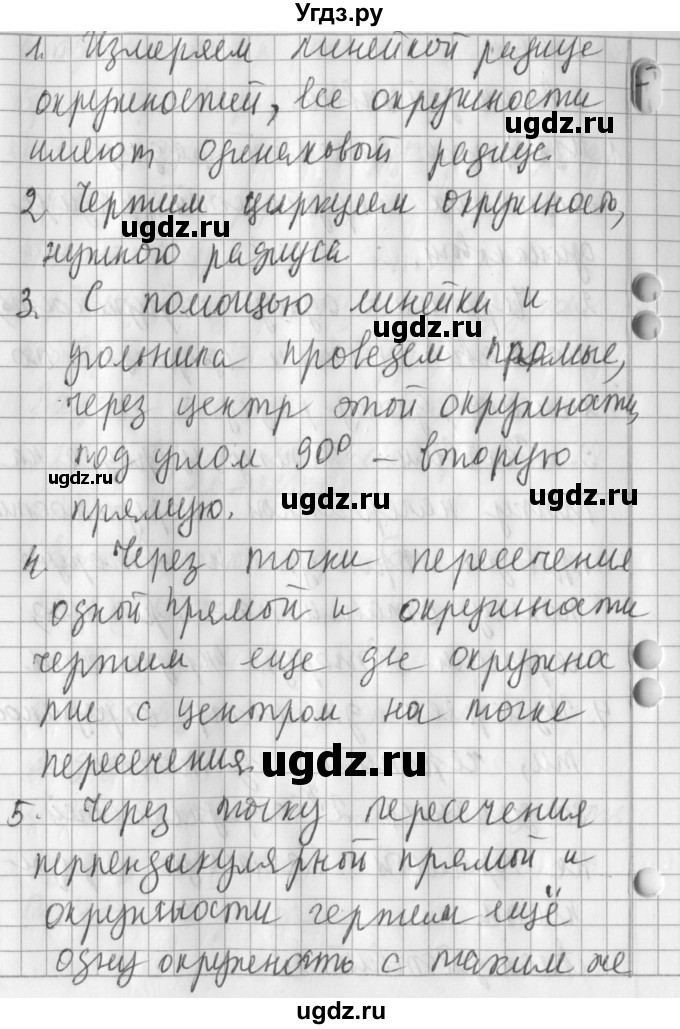 Угдз.ру
1. Измеряем линейкой радиус
окружностей, все окружности
ugdz.ru
имеют одинаковый радиус.
2. Чертим циркулем окружность,
ugdz.ru
нужного радиуса
3. С помощью линейки и
ugdz.ru
угольника проведем прямые,
через центр этой окружности,
под углом 90° – вторую
ugdz.ru
ugdz.ru
прямую.
4. Через точки пересечения
одной прямой и окружности
чертим еще две окружно
сти с центром на точке
пересечения.
ugdz.ru
5. Через точку пересечения
перпендикулярной прямой и
окружности чертим ещё
одну окружность с таким же
ugdz.ru